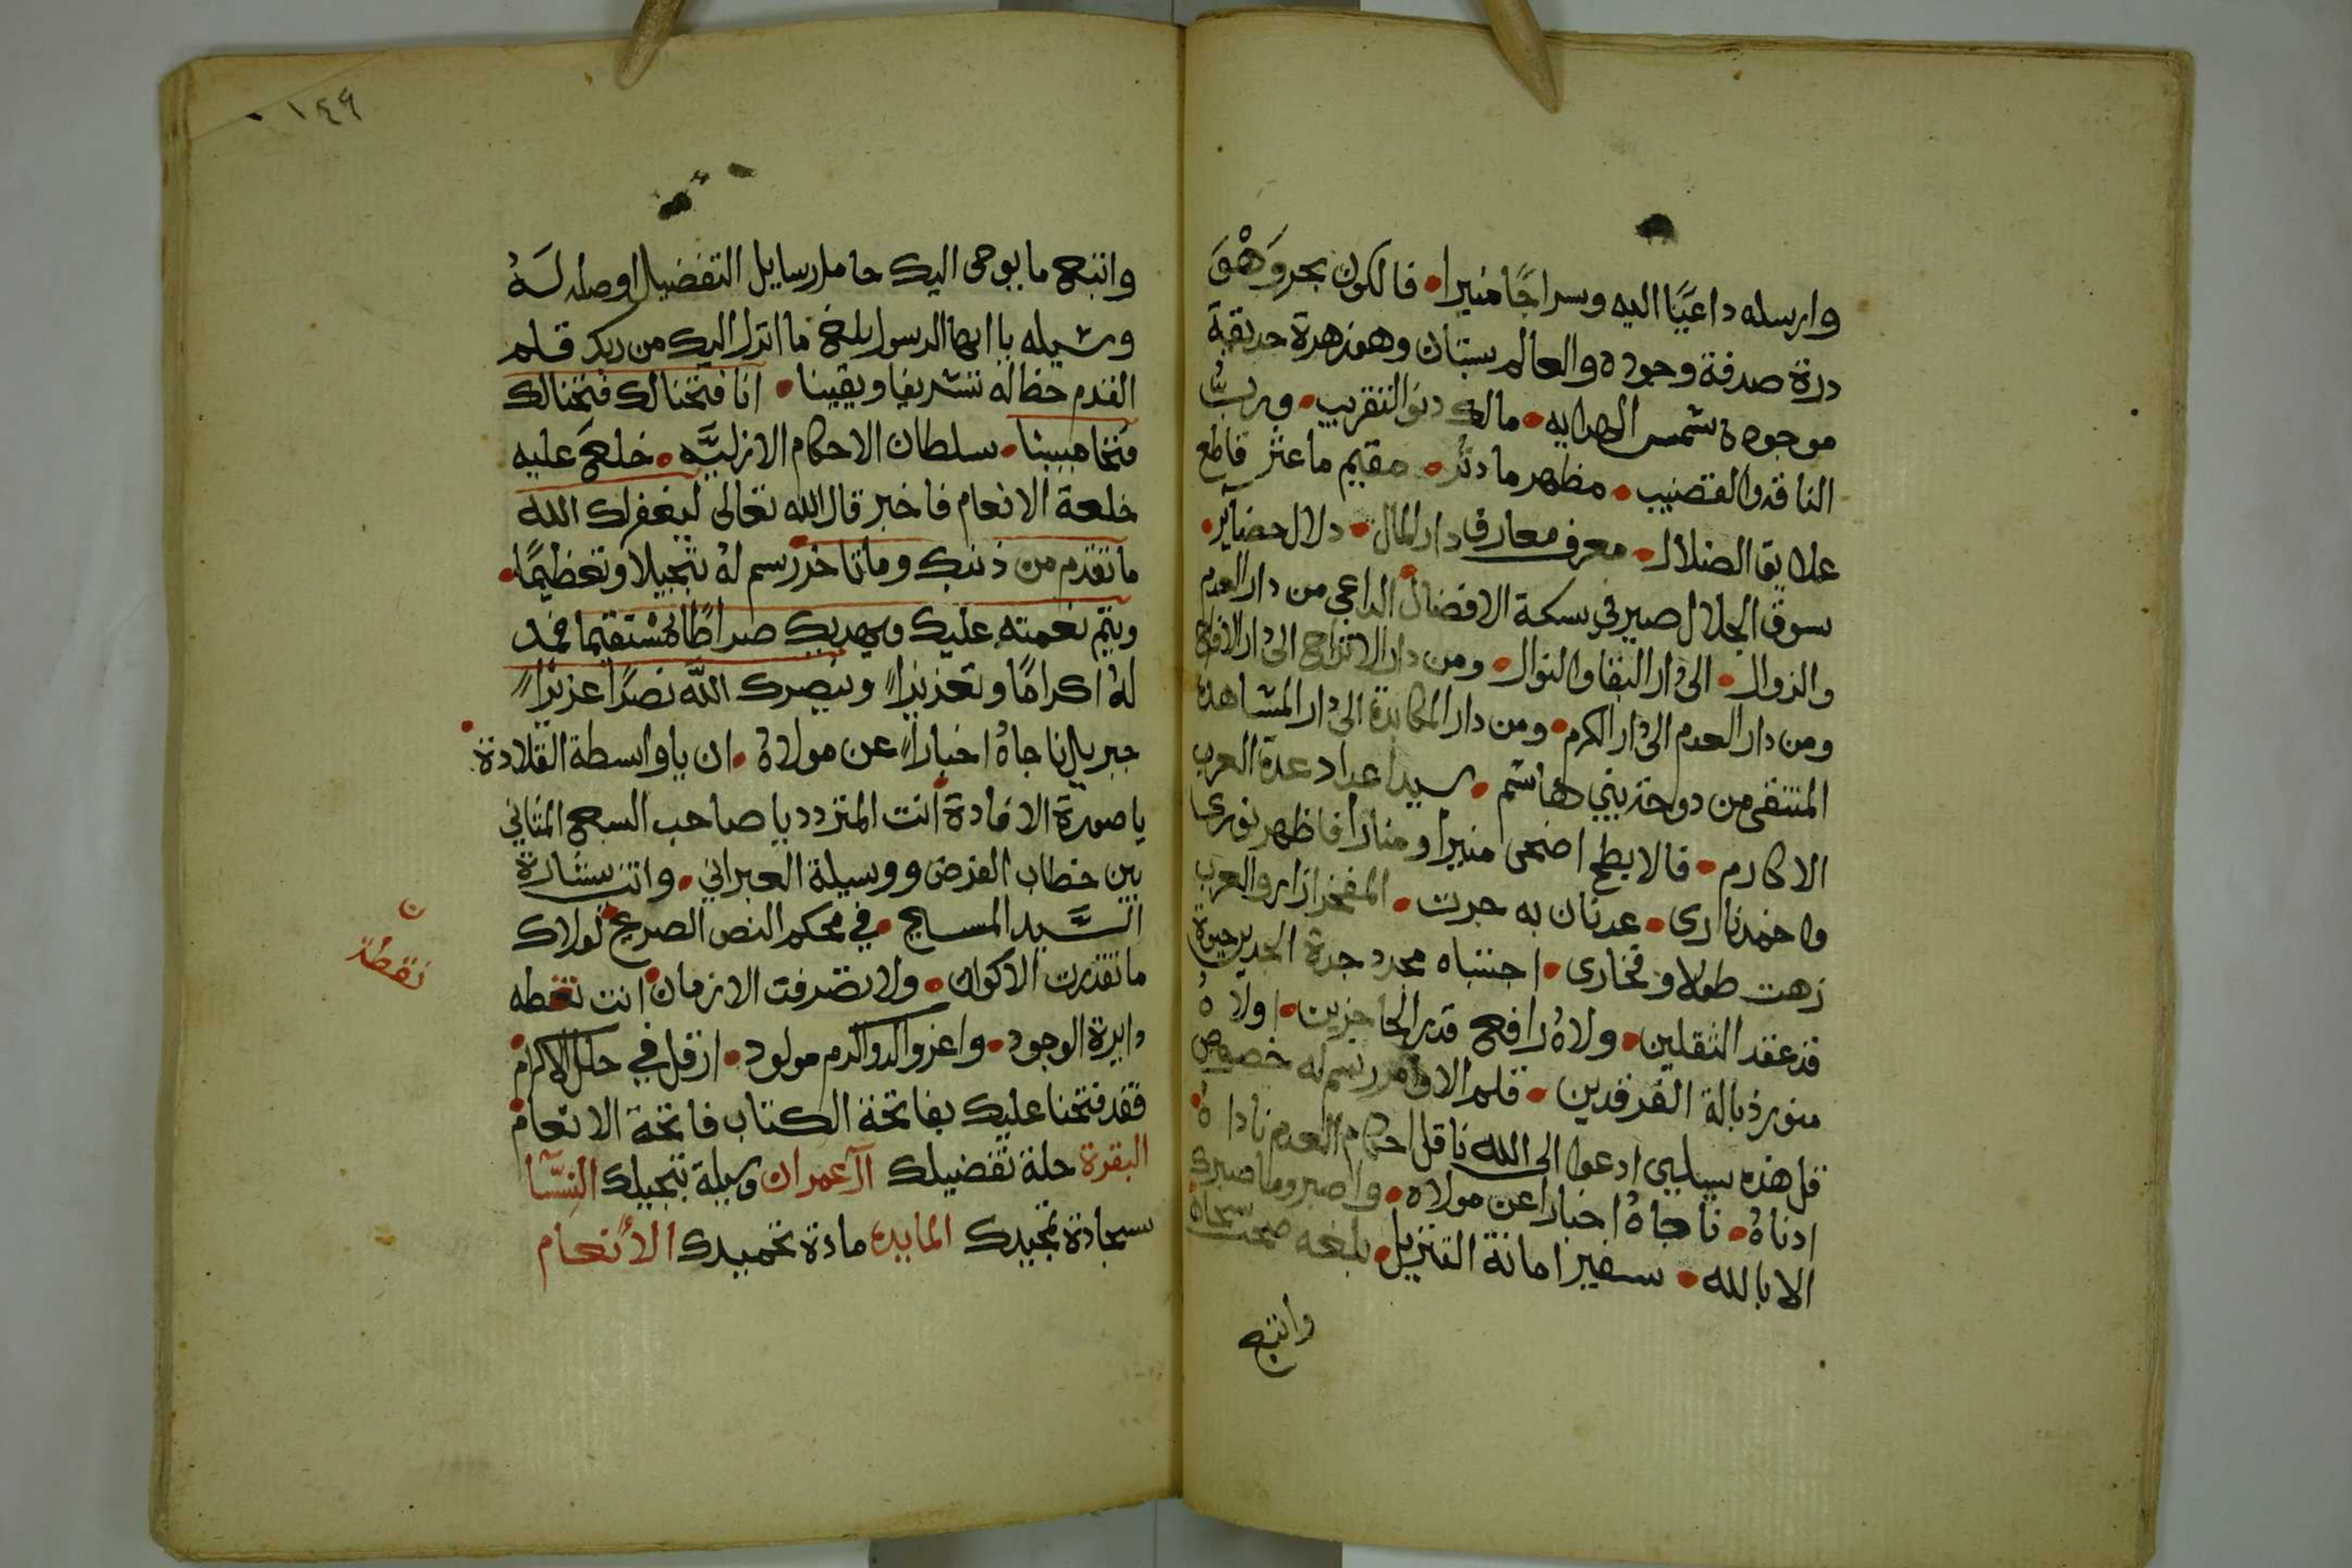 وارسله داعيًا اليه وسراجًا منيرا • فالكون بحر وَهْوَ
درة صدفة وجوده والعالم بستان وهو زهرة حديقة
موجوده شمس الهدايه • مالك دنو التقريب • ورب
الناقه والقضيب • مظهر ما دثر • مقيم ما عثر قاطع
علايق الضلال • معرف معارف دار المال • دلال حضاير •
سوق الجلال صيرفي سكة الافضال الداعي من دار العدم
والزوال • الى دار البقا والنوال • ومن دار الاتراح الى دار الافراح
ومن دار العدم الى دار الكرم • ومن دار المكابدة الى دار المشاهدة
المنتقى من دوحة بني هاشم • سيد اعداد عدة العرب
الاكارم • فالابطح اضحى منيرا ومنارا فاظهر نورى
واخمد نارى • عدنان به جرت • المفخر ازار والعرب
زهت طولا وفخارى • اجتباه مجدد جدة الجديدين حبوة
قد عقد الثقلين • ولاهُ رافع قدر الحاجزين • اولاهُ
منور ذبالة الفرقدين • قلم الاوامر رسم له خصوص
قل هذه سبيلى ادعوا الى الله ناقل احكام العدم نادا هُ
ادناهُ • ناجاهُ اخبارا عن مولاه • واصبر وما صبرك
الا بالله • سفير امانة التنزيل • بلغه صحت سجاة
واتبع
١٤٩
واتبع ما يوحى اليك حامل رسايل التفضيل اوصله لَهُ
وسيله يا ايها الرسول بلغ ما انزل اليك من ربك قلم
القدم خط له تشريفا ويقينا • انا فتحنا لك فتحنا لك
فتحا مبينا • سلطان الاحكام الازليَّه • خلعَ عليه
خلعة الانعام فاخبر قال الله تعالى ليغفر لك الله
ما تقدم من ذنبك وما تاخر رسم لهُ تبجيلا وتعظيمًا •
ويتم نعمته عليك ويهديك صراطًا مستقيما فمد
لهُ اكرامًا وتعزيزا وينصرك الله نصرًا عزيزًا
جبريل ناجاهُ اخبارا عن مولاهُ • ان يا واسطة القلادة •
يا صورة الافادة انت المتردد يا صاحب السبع المثاني
بين خطاب الفرض ووسيلة العبراني • وانت بشارة
السَّيد المسيح • في محكم النص الصريح لولاك
ما تقدرت الاكوان • ولا تصرفت الازمان • انت نقطه
دايرة الوجود • واعز والد واكرم مولود • ارفل في حلل الاكرام
فقد فتحنا عليك بفاتحة الكتاب فاتحة الانعام
البقرة حلة تفضيلك آل عمران وسيلة تبجيلك النسّآ
سجادة تمجيدك المايده مادة تحميدك الأنعام
ن
نقطة